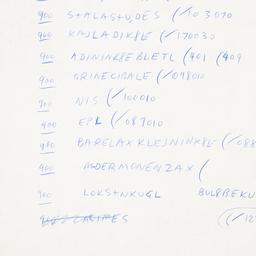 900 S+ALAS+UDES (/103070
900 KAJLADIK8E (/170030
900 ADININK8E BLETL (401 (409
900 GRINECIBALE (/098010
900 NIS (/100010
900 EPL (/087010
900 BARELAX KLEJNINK8E (/088
900 MODERMONENZAX (
900 LOKS+NKUGL BUL8BEKU
(/12